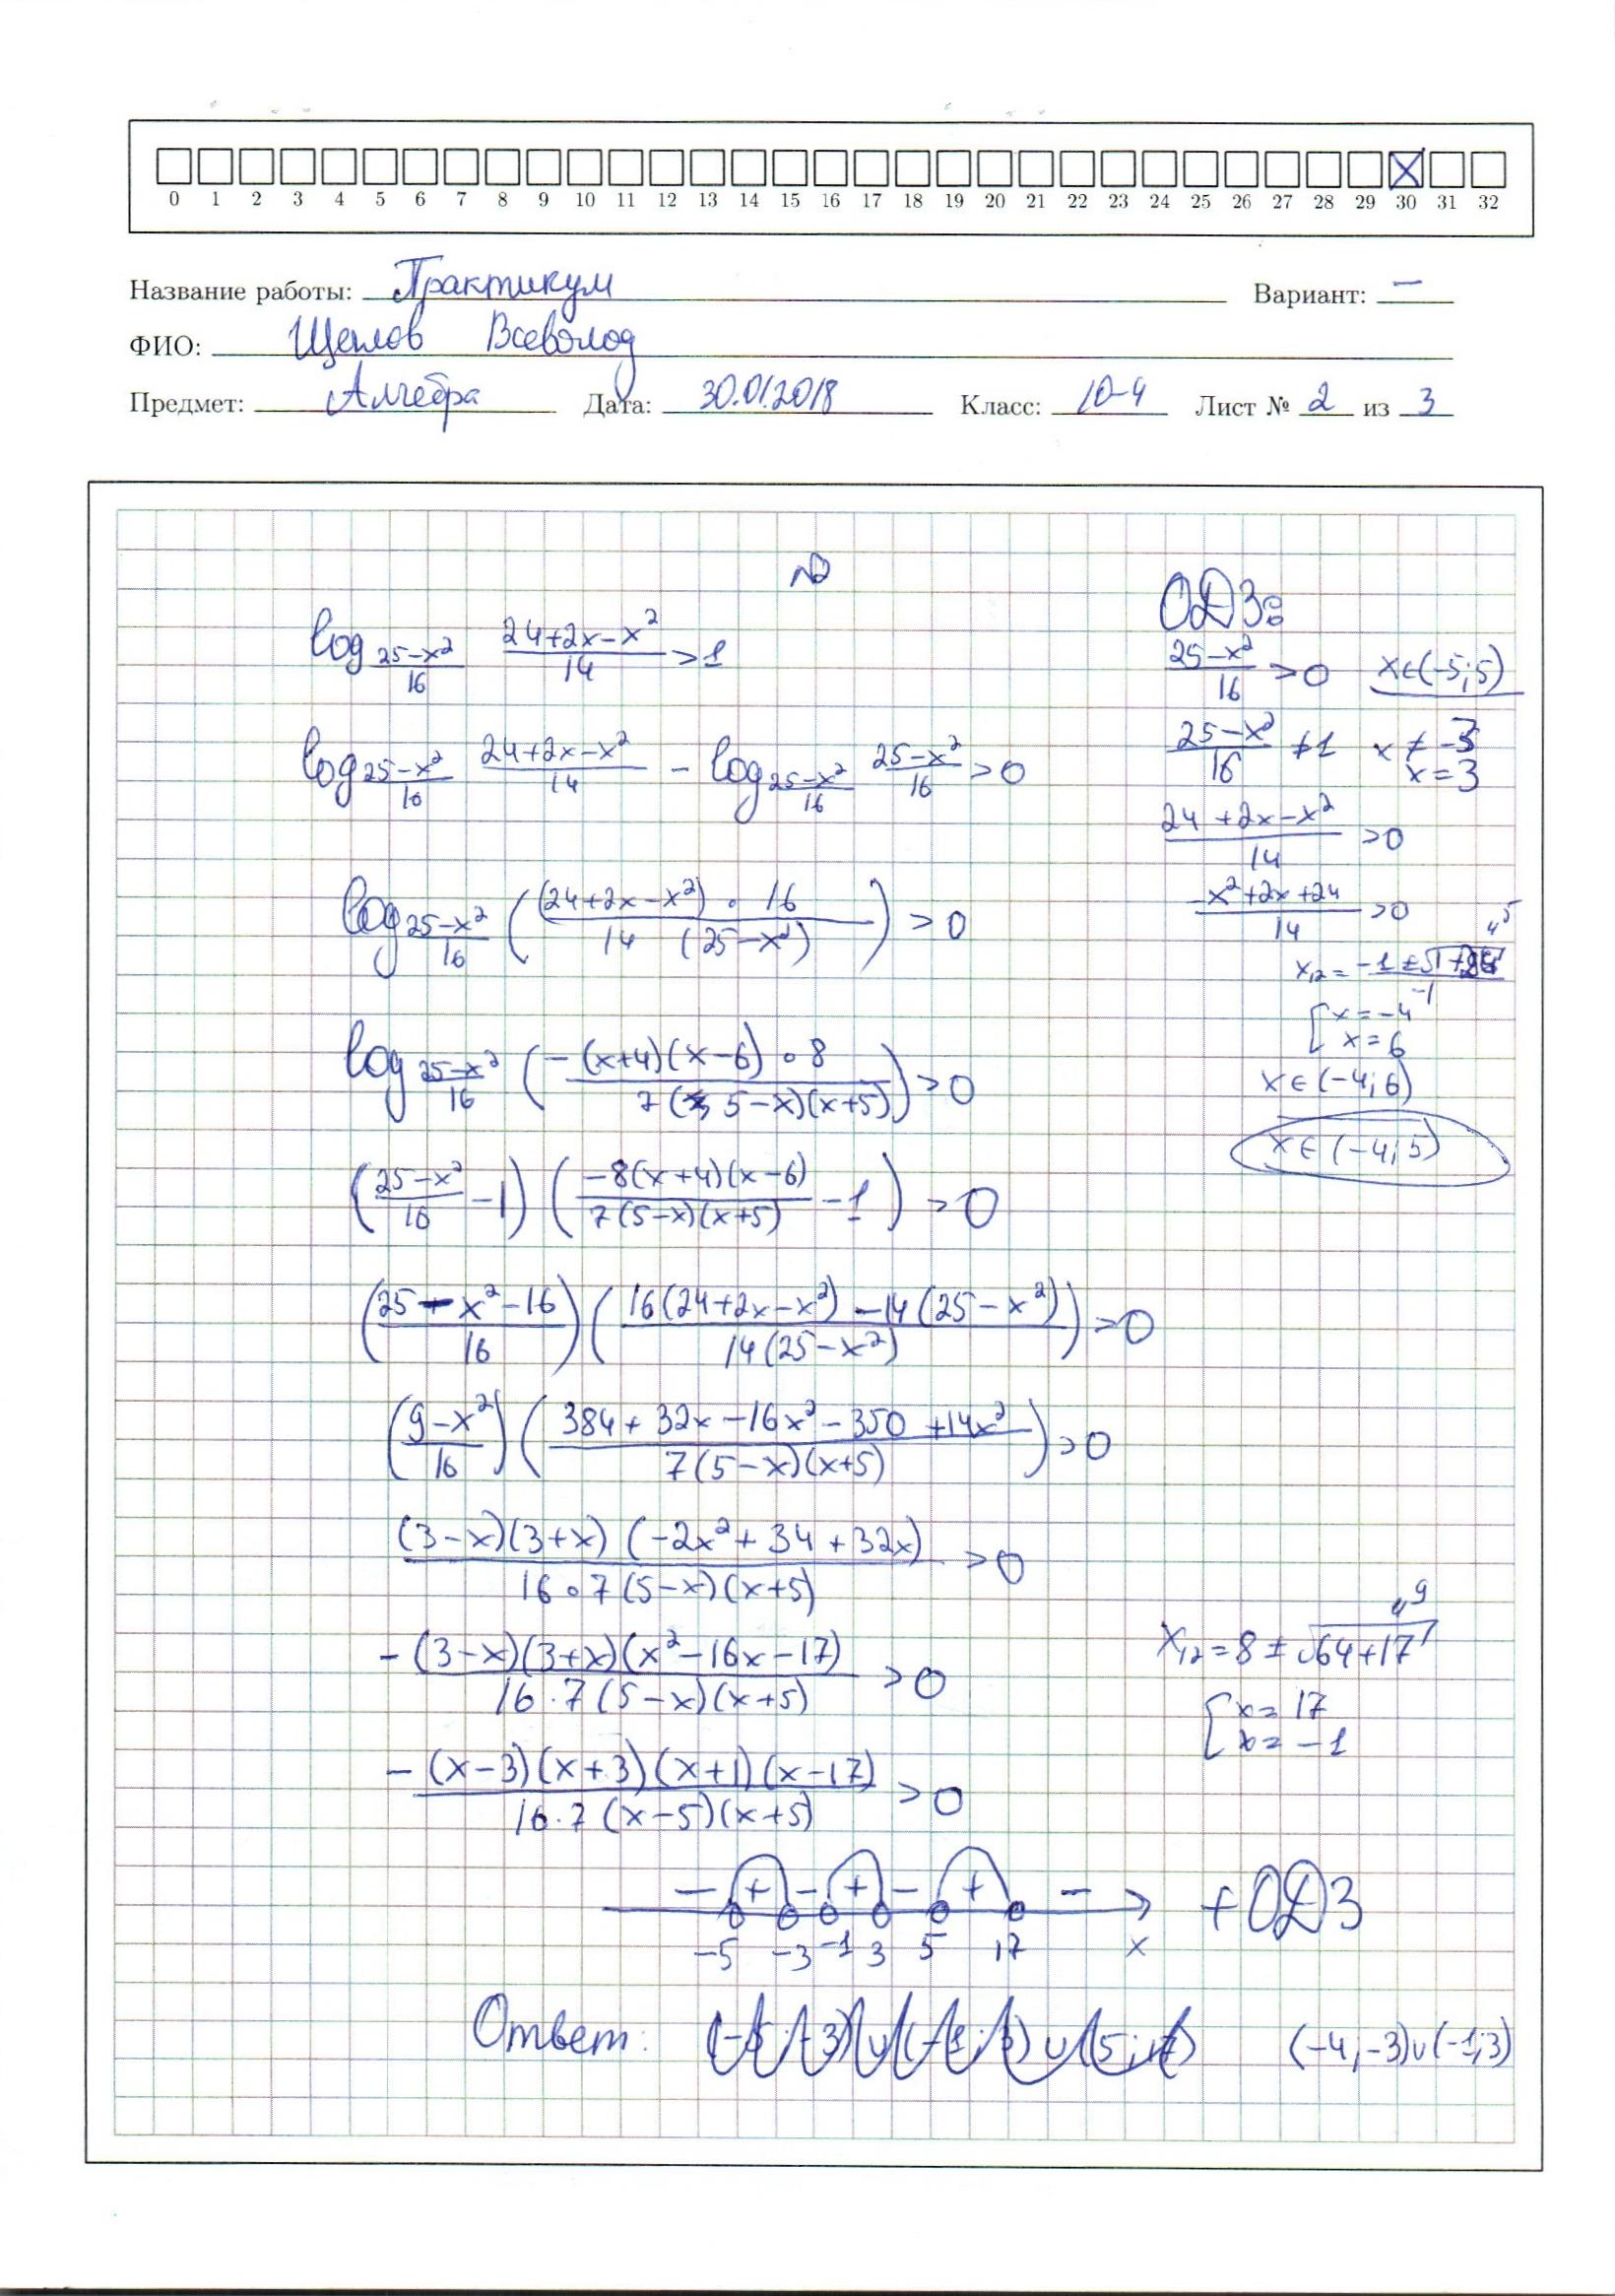 0 1 2 3 4 5 6 7 8 9 10 11 12 13 14 15 16 17 18 19 20 21 22 23 24 25 26 27 28 29 30 31 32
Название работы: Практикум Вариант: –
ФИО: Щеглов Всеволод
Предмет: Алгебра Дата: 30.01.2018 Класс: 10-4 Лист № 2 из 3
№2
log_{(25-x²)/16} (24+2x-x²)/14 > 1
log_{(25-x²)/16} (24+2x-x²)/14 - log_{(25-x²)/16} (25-x²)/16 > 0
log_{(25-x²)/16} ( (24+2x-x²) · 16 / 14 (25-x²) ) > 0
log_{(25-x²)/16} ( -(x+4)(x-6) · 8 / 7(5-x)(x+5) ) > 0
( (25-x²)/16 - 1 ) ( -8(x+4)(x-6) / 7(5-x)(x+5) - 1 ) > 0
( (25-x²-16)/16 ) ( 16(24+2x-x²) - 14(25-x²) / 14(25-x²) ) > 0
( (9-x²)/16 ) ( 384+32x-16x²-350+14x² / 7(5-x)(x+5) ) > 0
(3-x)(3+x)(-2x²+34+32x) / 16·7(5-x)(x+5) > 0
-(3-x)(3+x)(x²-16x-17) / 16·7(5-x)(x+5) > 0
-(x-3)(x+3)(x+1)(x-17) / 16·7(x-5)(x+5) > 0
ОДЗ:
(25-x²)/16 > 0 x∈(-5;5)
(25-x²)/16 ≠ 1 x ≠ -3
x = 3
(24+2x-x²)/14 > 0
(-x²+2x+24)/14 > 0
5
x = -4
x = 6
x∈(-4;6)
x∈(-4;5)
9
x₁,₂ = 8 ± √(64+17)
x = 17
x = -1
- + - + - + -
-5 -3 -1 3 5 17 x
+ ОДЗ
Ответ: (-4;-3)∪(-1;3)